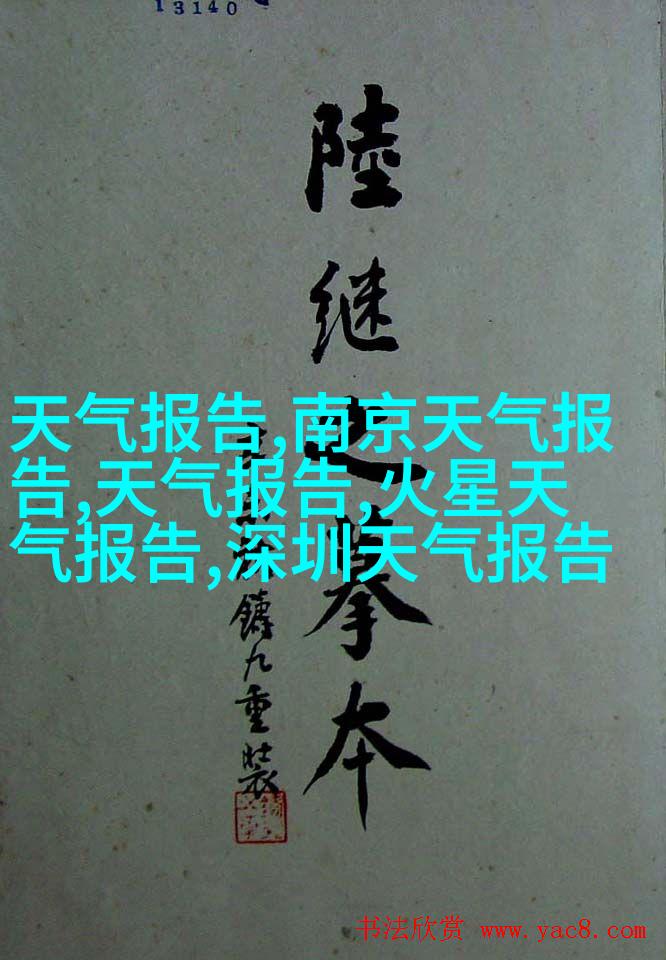 13140
陸继之摹本
天气报告,南京天气报
告,天气报告,火星天
气报告,深圳天气报告
鑄九重装
书法欣赏 www.yac8.com